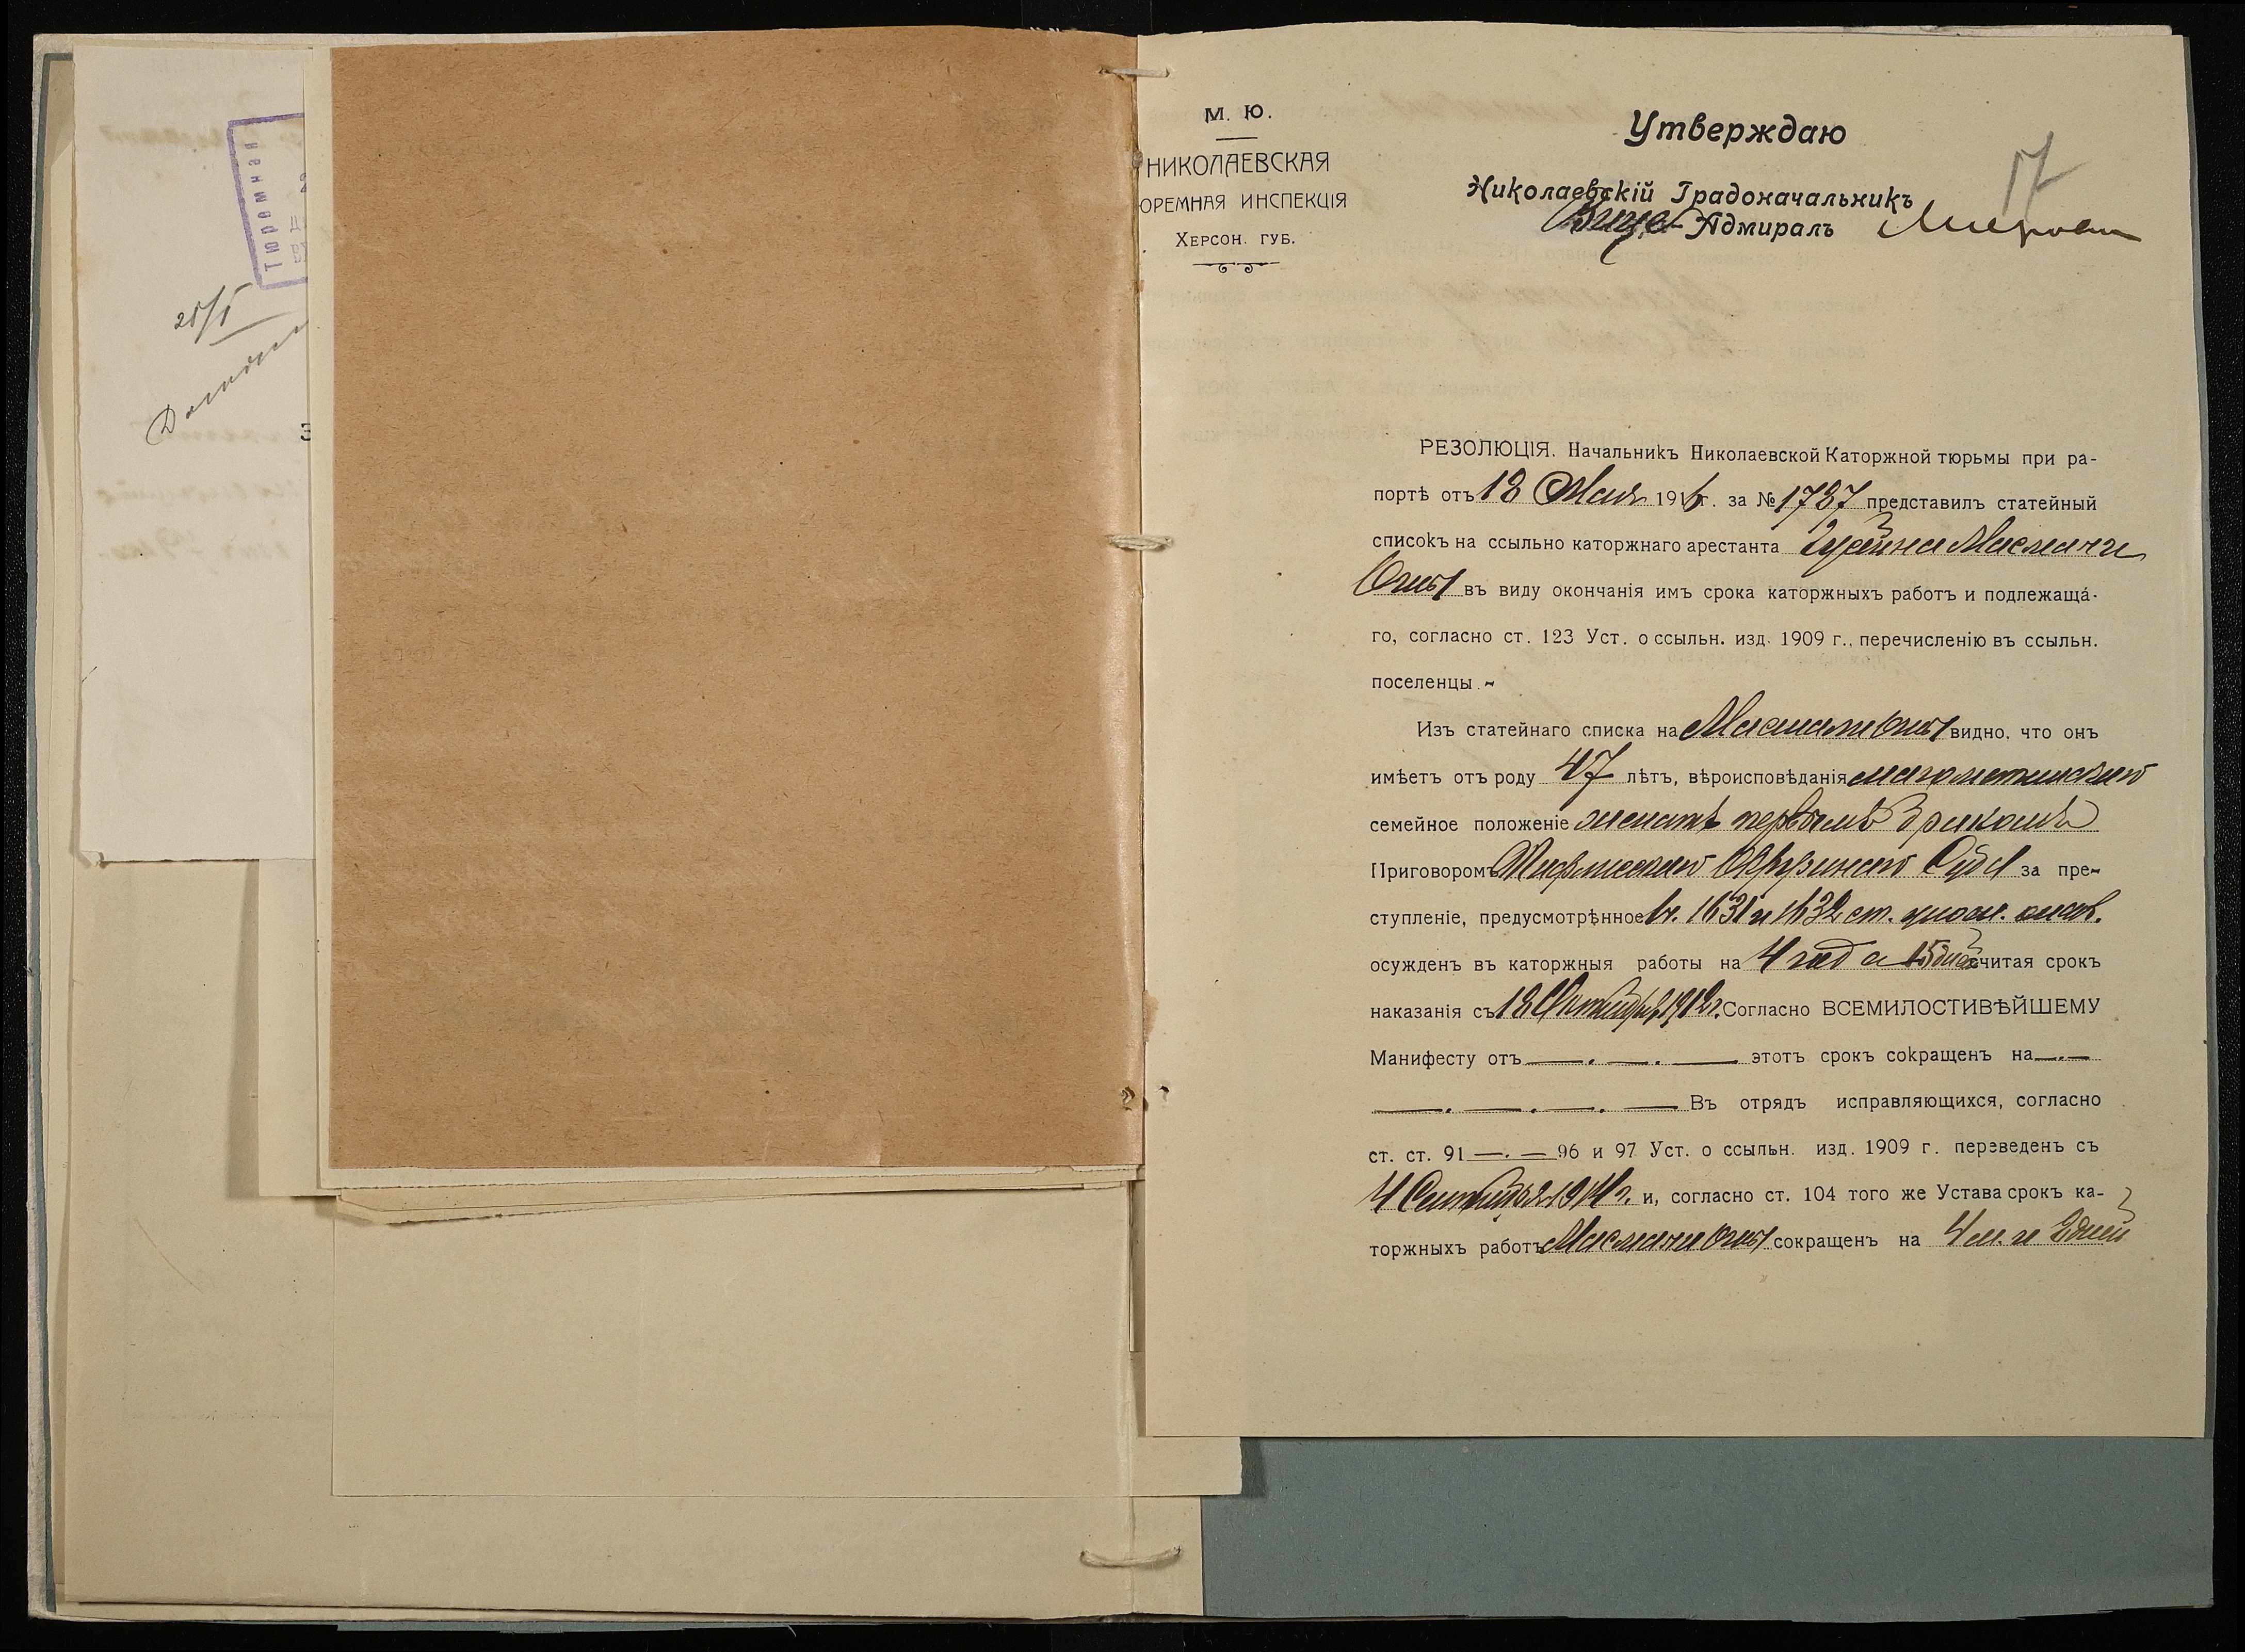 Тюремная
25/I
М. Ю.
НИКОЛАЕВСКАЯ
ЮРЕМНАЯ ИНСПЕКЦІЯ
ХЕРСОН. ГУБ.
Утверждаю
17
Николаевскій Градоначальникъ
Вице-Адмиралъ
РЕЗОЛЮЦІЯ. Начальникъ Николаевской Каторжной тюрьмы при ра-
портѣ отъ 18 Мая 1916г. за № 1787 представилъ статейный
списокъ на ссыльно каторжнаго арестанта
Оглы въ виду окончанія имъ срока каторжныхъ работъ и подлежаща-
го, согласно ст. 123 Уст. о ссыльн. изд. 1909 г., перечисленію въ ссыльн.
поселенцы.~
Изъ статейнаго списка на Оглы видно, что онъ
имѣетъ отъ роду 47 лѣтъ, вѣроисповѣданія магометанскаго
семейное положеніе женатъ первымъ бракомъ
Приговоромъ Тифлисскаго Окружнаго Суда за пре-
ступленіе, предусмотрѣнное 1 ч. 1631 и 1632 ст. улож. о наказ.
осужденъ въ каторжныя работы на 4 года 15 дней считая срокъ
наказанія съ 18 Октября 1912г. Согласно ВСЕМИЛОСТИВѢЙШЕМУ
Манифесту отъ —.—.— этотъ срокъ сокращенъ на —.—
—.—.—.— Въ отрядъ исправляющихся, согласно
ст. ст. 91 —.— 96 и 97 Уст. о ссыльн. изд. 1909 г. переведенъ съ
4 Сентября 1914 г. и, согласно ст. 104 того же Устава срокъ ка-
торжныхъ работъ Оглы сокращенъ на 4 м. и 2 дней